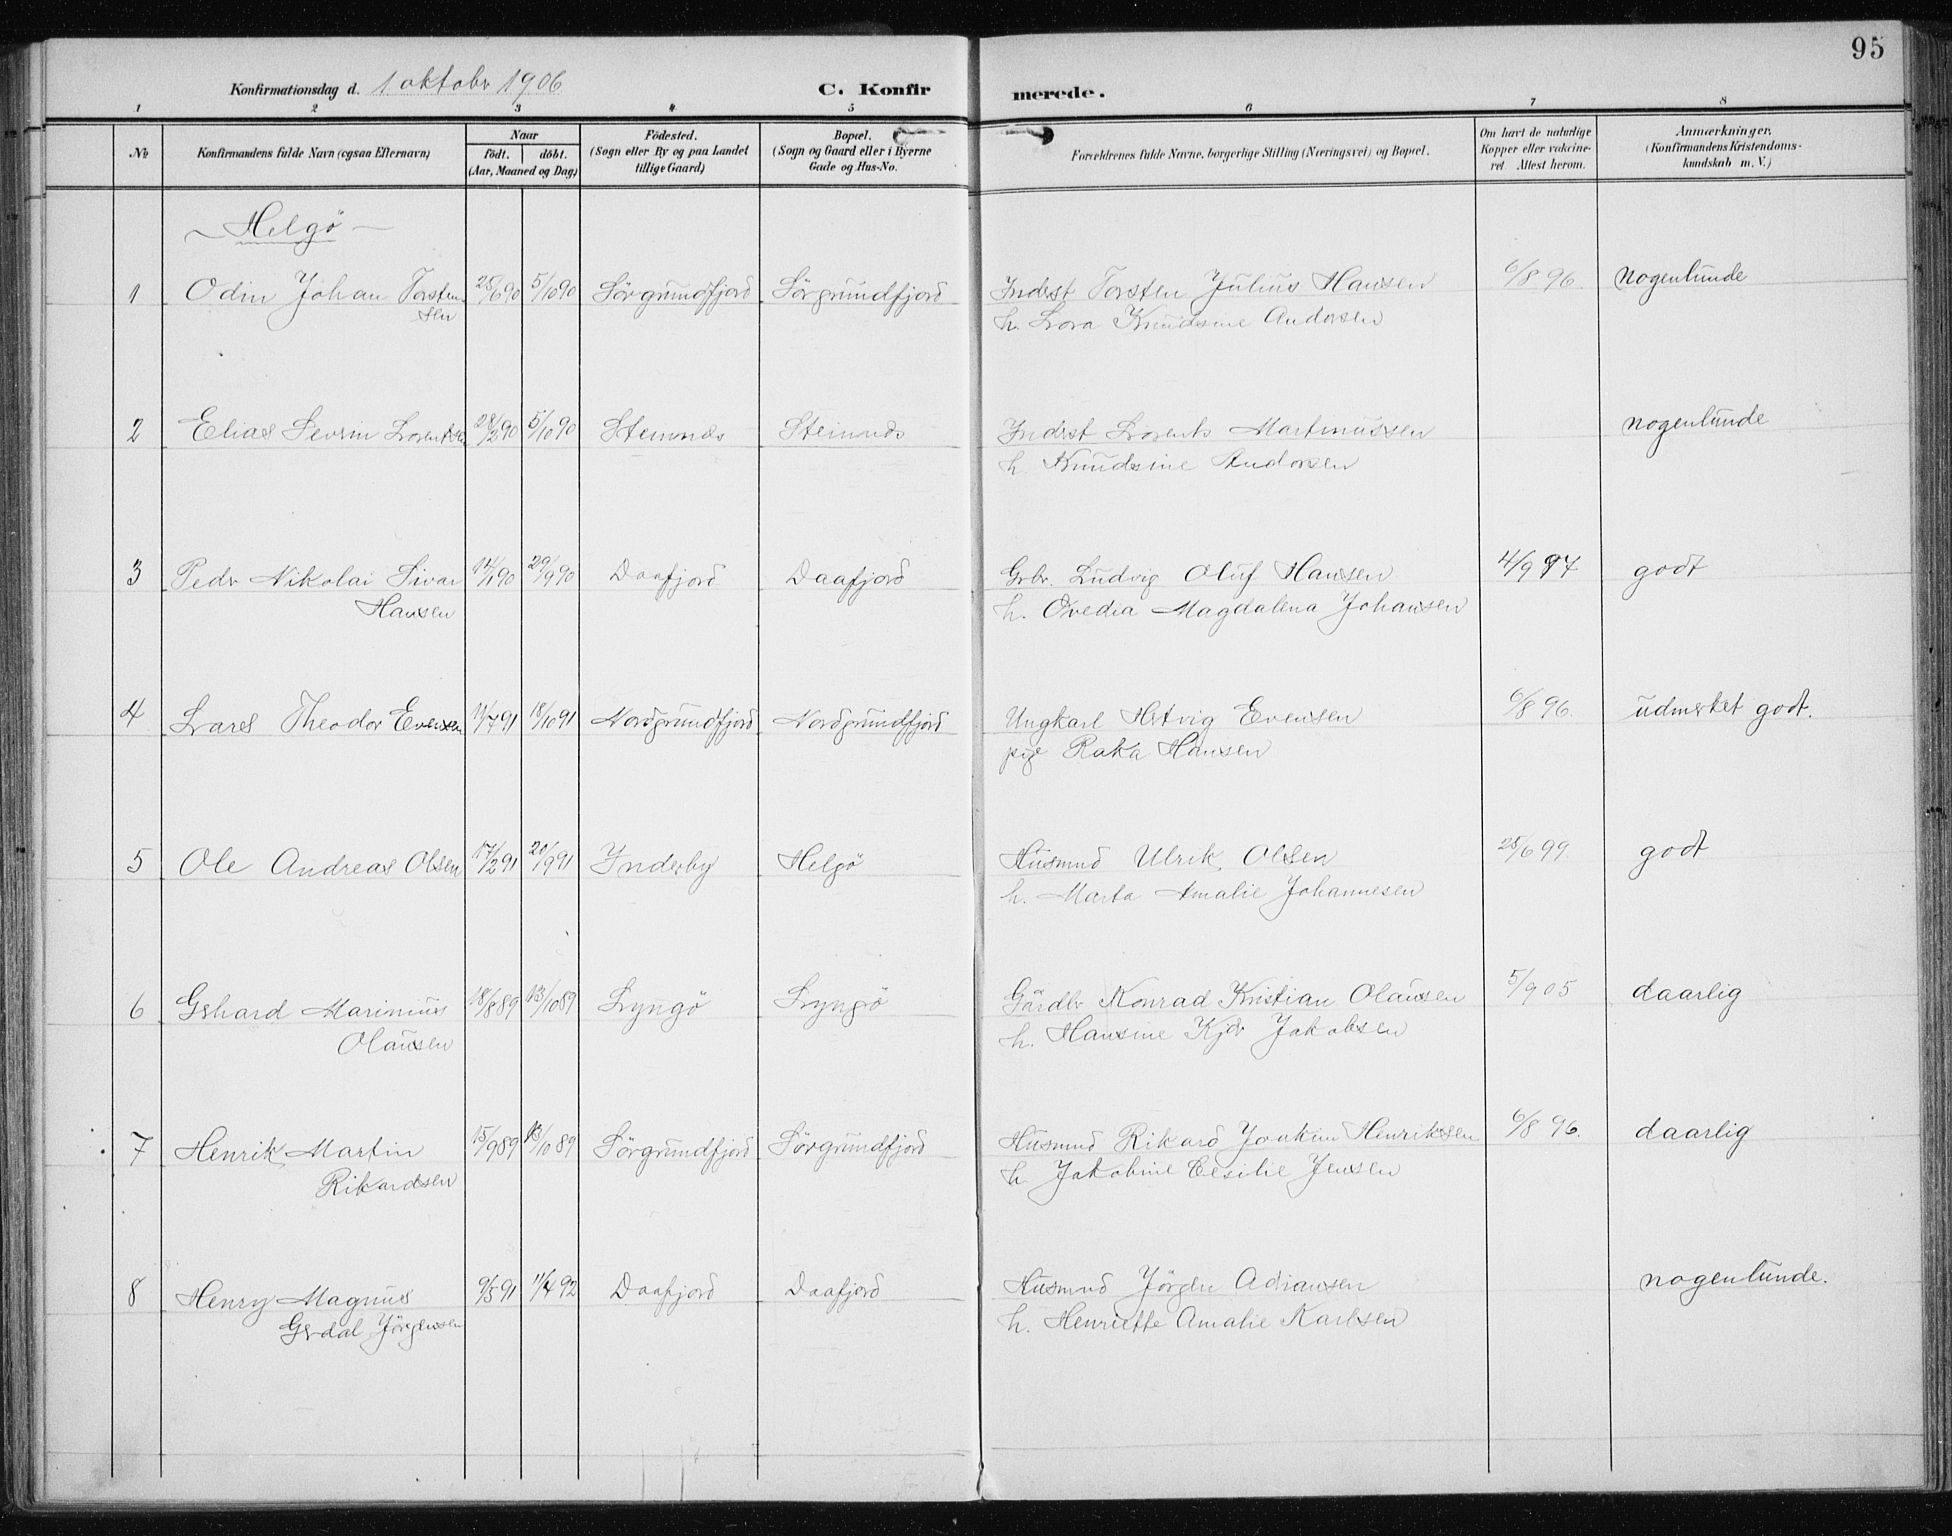 95
Konfirmationsdag d. 1 oktobr 1906
C. Konfir
merede.
1 2 3 4 5 6 7 8
No
Konfirmandens fulde Navn (ogsaa Efternavn)
Naar
födt. döbt.
(Aar, Maaned og Dag)
Födested.
(Sogn eller By og paa Landet
tillige Gaard)
Bopæl.
(Sogn og Gaard eller i Byerne
Gade og Hus-No.
Forældrenes fulde Navne, borgerlige Stilling (Næringsvei) og Bopæl.
Om havt de naturlige
Kopper eller vakcine-
ret. Attest herom.
Anmærkninger.
(Konfirmandens Kristendoms-
kundskab m. V.)
Helgö
1 Odin Johan Torsten 25/6 90 5/10 90 Sörgrundfjord Sörgrundfjord Inderst Torsten Julius Hansen 6/8 96. nogenlunde
sen h. Lova Knudsine Andorsen
2 Elias Sevrin Lorents 5/10 90 Steinnes Steinnes Inderst Lorents Martinussen nogenlunde
h. Knudsine Andorsen
3 Pedr Nikolai Sivar 20/9 90 Daafjord Daafjord Grbr. Ludvig Oluf Hansen 4/9 97 godt
Hansen h. Ovedia Magdalena Johansen
4 Lars Theodor Evensen 11/7 91 18/10 91 Nordgrundfjord Nordgrundfjord Ungkarl Hetvig Evensen 6/8 96. udmerket godt.
pige Raka Hansen
5 Ole Andreas Olsen 17/2 91 20/9 91 Inderby Helgö Husmnd Ulrik Olsen 25/6 99. godt
h. Marta Amalie Johannesen
6 Gerhard Marinius 18/8 89 13/10 89 Lyngö Lyngö Gårdbr Konrad Kristian Olausen 5/9 05 daarlig
Olausen h. Hansine Kjdr Jakobsen
7 Henrik Martin 15/9 89 13/10 89 Sörgrundfjord Sörgrundfjord Husmnd Rikard Joakim Henriksen 6/8 96. daarlig
Rikardsen h. Jakobine Cesilie Jensen
8 Henry Magnus 9/5 91 4 92 Daafjord Daafjord Husmnd Jörgen Adriansen nogenlunde.
Gerdal Jörgensen h. Henriette Amalie Karlsen